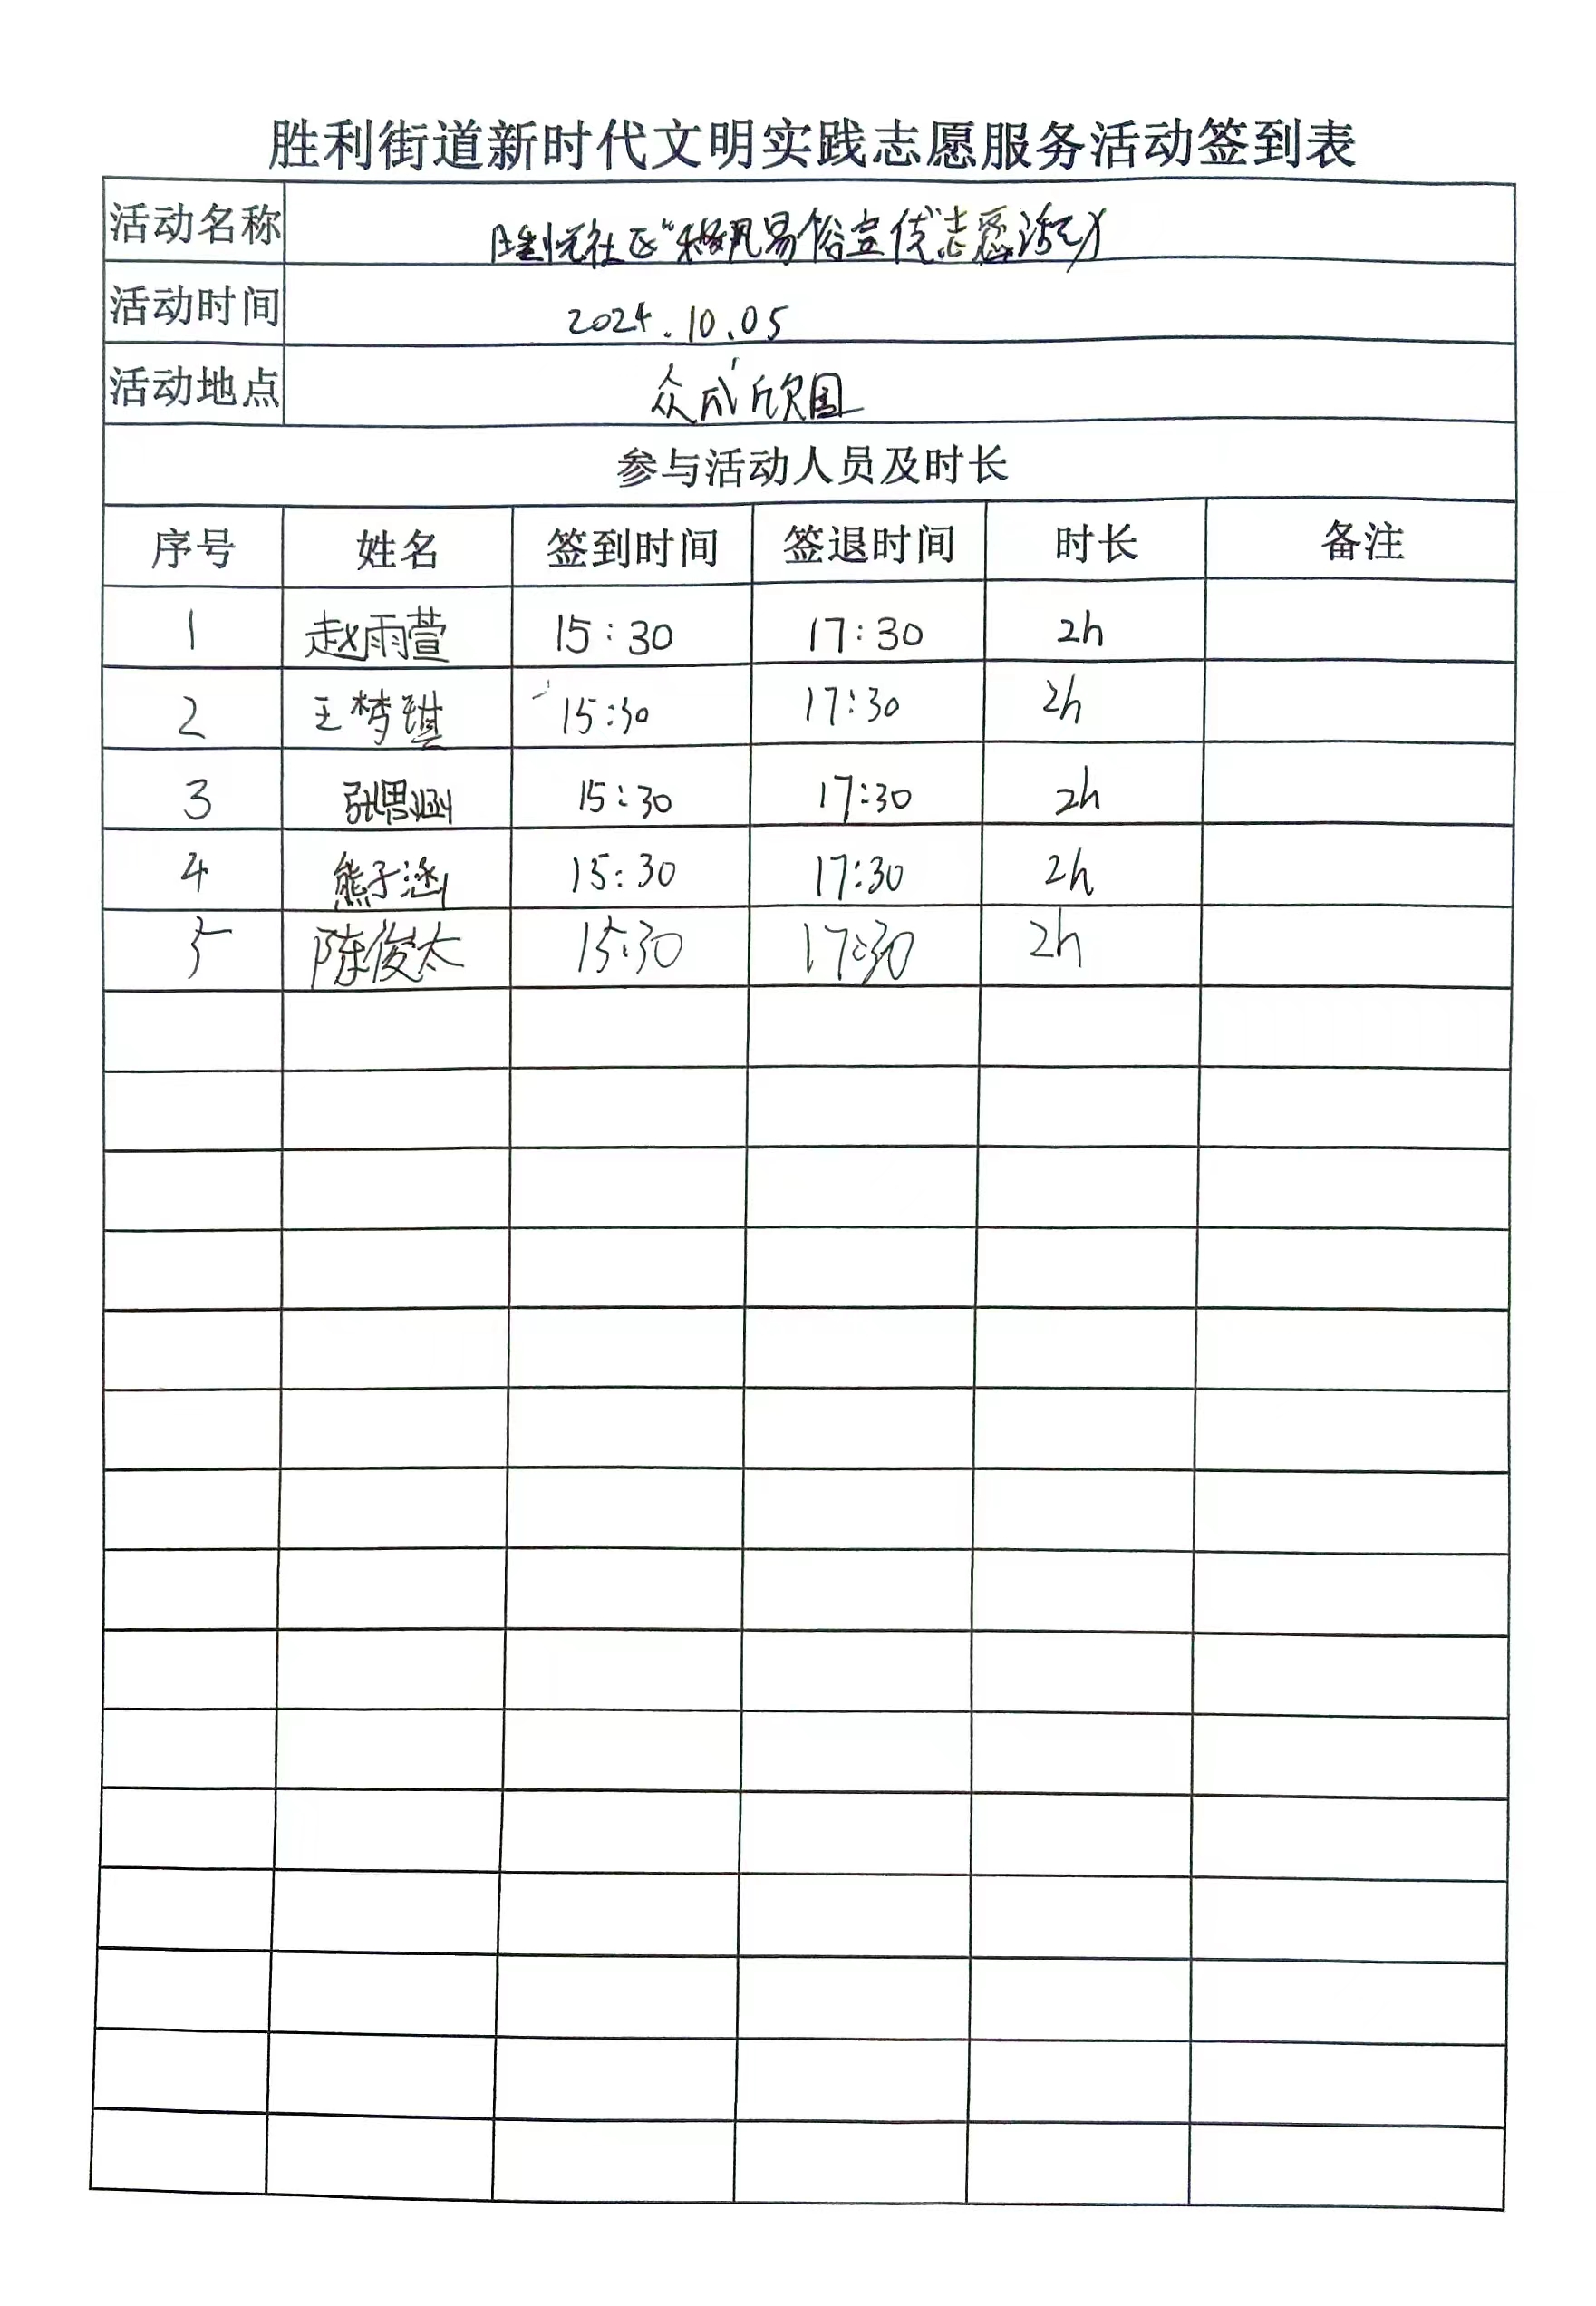 胜利街道新时代文明实践志愿服务活动签到表
活动名称 胜悦社区“移风易俗宣传”志愿活动
活动时间 2024.10.05
活动地点 众成欣园
参与活动人员及时长
序号 姓名 签到时间 签退时间 时长 备注
1 赵雨萱 15:30 17:30 2h
2 王梦琪 15:30 17:30 2h
3 张思涵 15:30 17:30 2h
4 熊子涵 15:30 17:30 2h
5 陈俊太 15:30 17:30 2h